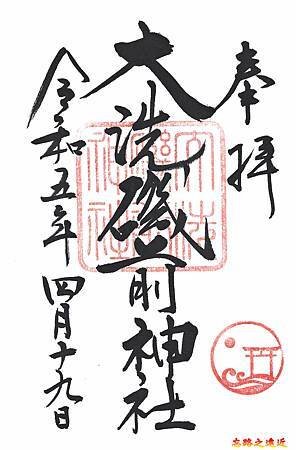 奉拝
大洗磯前神社
令和五年四月十九日
忘路之遠近